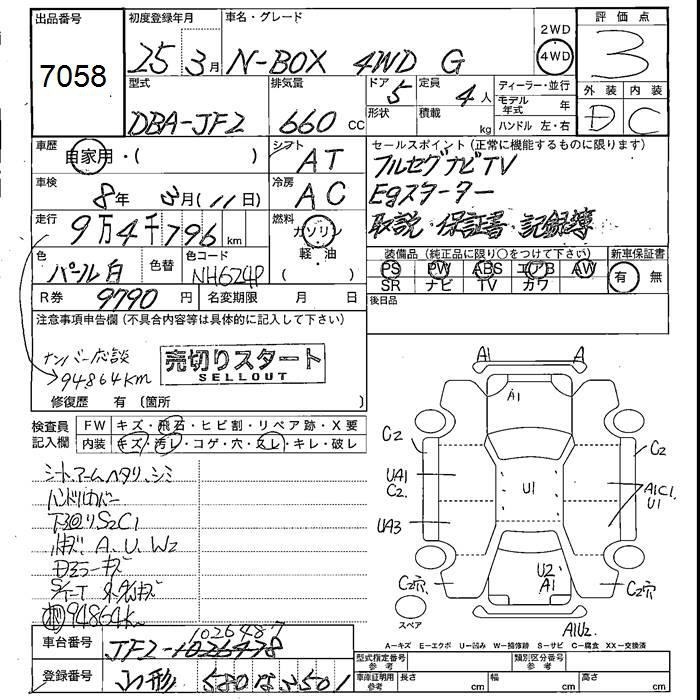 出品番号
7058
初度登録年月
25 3月
車名・グレード
N-BOX 4WD G
2WD
4WD
評価点
3
外装 内装
D C
型式
DBA-JF2
排気量
660 CC
ドア 5
形状
定員 4人
積載 kg
ディーラー・並行
モデル年式 年
ハンドル 左・右
車歴
自家用・( )
シフト
AT
セールスポイント(正常に機能するものに限ります)
フルセグナビTV
Egスターター
取説・保証書・記録簿
車検
8年 3月(11日)
冷房
AC
走行
9万4千796km
燃料
ガソリン
軽・油
色
パール白
色替
色コード
NH624P
装備品(純正品に限り○をつけて下さい)
PS PW ABS エアB AW
SR ナビ TV カワ
新車保証書
有 無
R券 9790円 名変期限 月 日
後日品
注意事項申告欄(不具合内容等は具体的に記入して下さい)
ナンバー応談
94864km
売切りスタート
SELLOUT
修復歴 有(箇所 )
検査員記入欄
FW キズ・飛石・ヒビ割・リペア跡・X要
内装 キズ・汚レ・コゲ・穴・スレ・キレ・破レ
シート、アームヘタリ、シミ
ハンドルカバー
下回りS2C1
A、U、W2
94864k
A1 A
A1
C2 C2
UA1
C2
U1
A1C1
U1
UA3
U2
A1
C2穴 C2穴
スペア
A1U2
A=キズ E=エクボ U=凹み W=補修跡 S=サビ C=腐食 XX=交換済
車台番号
1026487
JF2-1026478
登録番号
580 501
型式指定番号 参考
類別区分番号 参考
車庫証明用 参考
長さ cm 幅 cm 高さ cm